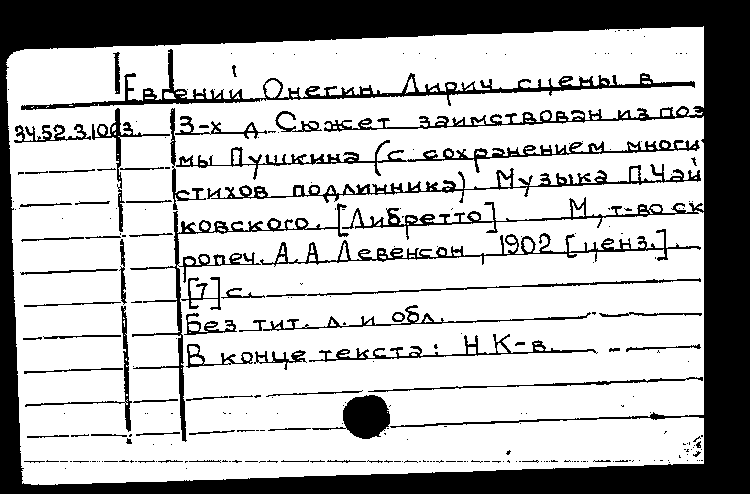 Евгений Онегин. Лирич. сцены в
34.52.3.1003. 3-х д. Сюжет заимствован из поэ
мы Пушкина (с сохранением многи
стихов подлинника). Музыка П.Чай
ковского. [Либретто]. М., т-во ск
ропеч. А.А Левенсон, 1902 [ценз.].
[7] с.
Без тит. л. и обл.
В конце текста: Н.К-в.